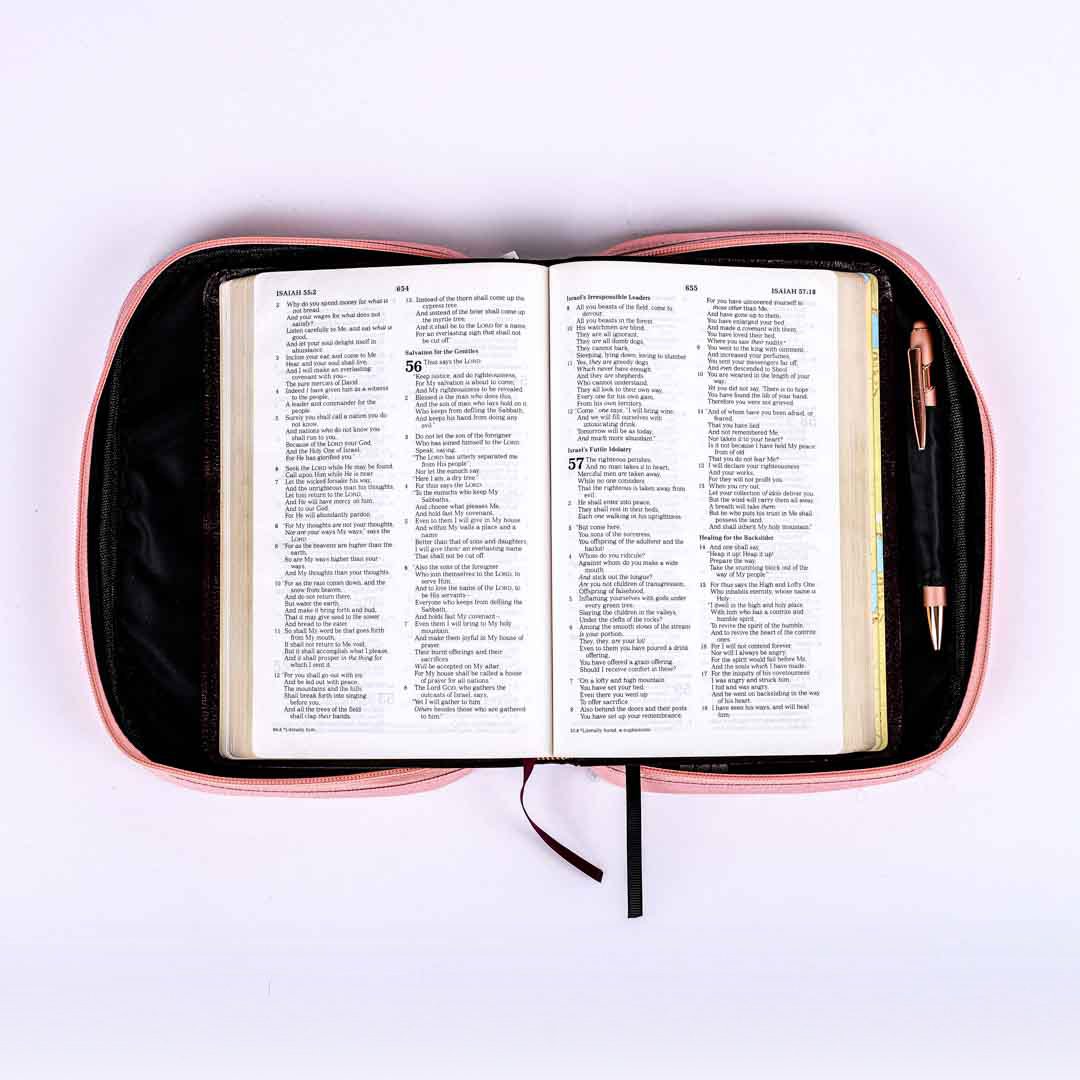 ISAIAH 55:2
654
2 Why do you spend money for what is
not bread,
And your wages for what does not
satisfy?
Listen carefully to Me, and eat what is
good,
And let your soul delight itself in
abundance.
3 Incline your ear, and come to Me.
Hear, and your soul shall live;
And I will make an everlasting
covenant with you—
The sure mercies of David.
4 Indeed I have given him as a witness
to the people,
A leader and commander for the
people.
5 Surely you shall call a nation you do
not know,
And nations who do not know you
shall run to you,
Because of the LORD your God,
And the Holy One of Israel;
For He has glorified you."
6 Seek the LORD while He may be found,
Call upon Him while He is near.
7 Let the wicked forsake his way,
And the unrighteous man his thoughts;
Let him return to the LORD,
And He will have mercy on him;
And to our God,
For He will abundantly pardon.
8 "For My thoughts are not your thoughts,
Nor are your ways My ways," says the
LORD.
9 "For as the heavens are higher than the
earth,
So are My ways higher than your
ways,
And My thoughts than your thoughts.
10 "For as the rain comes down, and the
snow from heaven,
And do not return there,
But water the earth,
And make it bring forth and bud,
That it may give seed to the sower
And bread to the eater,
11 So shall My word be that goes forth
from My mouth;
It shall not return to Me void,
But it shall accomplish what I please,
And it shall prosper in the thing for
which I sent it.
12 "For you shall go out with joy,
And be led out with peace;
The mountains and the hills
Shall break forth into singing
before you,
And all the trees of the field
shall clap their hands.
13 Instead of the thorn shall come up the
cypress tree,
And instead of the brier shall come up
the myrtle tree;
And it shall be to the LORD for a name,
For an everlasting sign that shall not
be cut off."
Salvation for the Gentiles
56 Thus says the LORD:
"Keep justice, and do righteousness,
For My salvation is about to come,
And My righteousness to be revealed.
2 Blessed is the man who does this,
And the son of man who lays hold on it;
Who keeps from defiling the Sabbath,
And keeps his hand from doing any
evil."
3 Do not let the son of the foreigner
Who has joined himself to the LORD
Speak, saying,
"The LORD has utterly separated me
from His people";
Nor let the eunuch say,
"Here I am, a dry tree."
4 For thus says the LORD:
"To the eunuchs who keep My
Sabbaths,
And choose what pleases Me,
And hold fast My covenant,
5 Even to them I will give in My house
And within My walls a place and a
name
Better than that of sons and daughters;
I will give them an everlasting name
That shall not be cut off.
6 "Also the sons of the foreigner
Who join themselves to the LORD, to
serve Him,
And to love the name of the LORD, to
be His servants—
Everyone who keeps from defiling the
Sabbath,
And holds fast My covenant—
7 Even them I will bring to My holy
mountain,
And make them joyful in My house of
prayer.
Their burnt offerings and their
sacrifices
Will be accepted on My altar;
For My house shall be called a house
of prayer for all nations."
8 The Lord GOD, who gathers the
outcasts of Israel, says,
"Yet I will gather to him
Others besides those who are gathered
to him."
655
ISAIAH 57:18
Israel's Irresponsible Leaders
9 All you beasts of the field, come to
devour,
All you beasts in the forest.
10 His watchmen are blind,
They are all ignorant;
They are all dumb dogs,
They cannot bark;
Sleeping, lying down, loving to slumber.
11 Yes, they are greedy dogs
Which never have enough.
And they are shepherds
Who cannot understand;
They all look to their own way,
Every one for his own gain,
From his own territory.
12 "Come," one says, "I will bring wine,
And we will fill ourselves with
intoxicating drink;
Tomorrow will be as today,
And much more abundant."
Israel's Futile Idolatry
57 The righteous perishes,
And no man takes it to heart;
Merciful men are taken away,
While no one considers
That the righteous is taken away from
evil.
2 He shall enter into peace;
They shall rest in their beds,
Each one walking in his uprightness.
3 "But come here,
You sons of the sorceress,
You offspring of the adulterer and the
harlot!
4 Whom do you ridicule?
Against whom do you make a wide
mouth
And stick out the tongue?
Are you not children of transgression,
Offspring of falsehood,
5 Inflaming yourselves with gods under
every green tree,
Slaying the children in the valleys,
Under the clefts of the rocks?
6 Among the smooth stones of the stream
Is your portion;
They, they, are your lot!
Even to them you have poured a drink
offering,
You have offered a grain offering.
Should I receive comfort in these?
7 "On a lofty and high mountain
You have set your bed;
Even there you went up
To offer sacrifice.
8 Also behind the doors and their posts
You have set up your remembrance;
For you have uncovered yourself to
those other than Me,
And have gone up to them;
You have enlarged your bed
And made a covenant with them;
You have loved their bed,
Where you saw their nudity.
9 You went to the king with ointment,
And increased your perfumes;
You sent your messengers far off,
And even descended to Sheol.
10 You are wearied in the length of your
way;
Yet you did not say, 'There is no hope.'
You have found the life of your hand;
Therefore you were not grieved.
11 "And of whom have you been afraid, or
feared,
That you have lied
And not remembered Me,
Nor taken it to your heart?
Is it not because I have held My peace
from of old
That you do not fear Me?
12 I will declare your righteousness
And your works,
For they will not profit you.
13 When you cry out,
Let your collection of idols deliver you.
But the wind will carry them all away,
A breath will take them.
But he who puts his trust in Me shall
possess the land,
And shall inherit My holy mountain."
Healing for the Backslider
14 And one shall say,
"Heap it up! Heap it up!
Prepare the way,
Take the stumbling block out of the
way of My people."
15 For thus says the High and Lofty One
Who inhabits eternity, whose name is
Holy:
"I dwell in the high and holy place,
With him who has a contrite and
humble spirit,
To revive the spirit of the humble,
And to revive the heart of the contrite
ones.
16 For I will not contend forever,
Nor will I always be angry;
For the spirit would fail before Me,
And the souls which I have made.
17 For the iniquity of his covetousness
I was angry and struck him;
I hid and was angry,
And he went on backsliding in the way
of his heart.
18 I have seen his ways, and will heal
him;